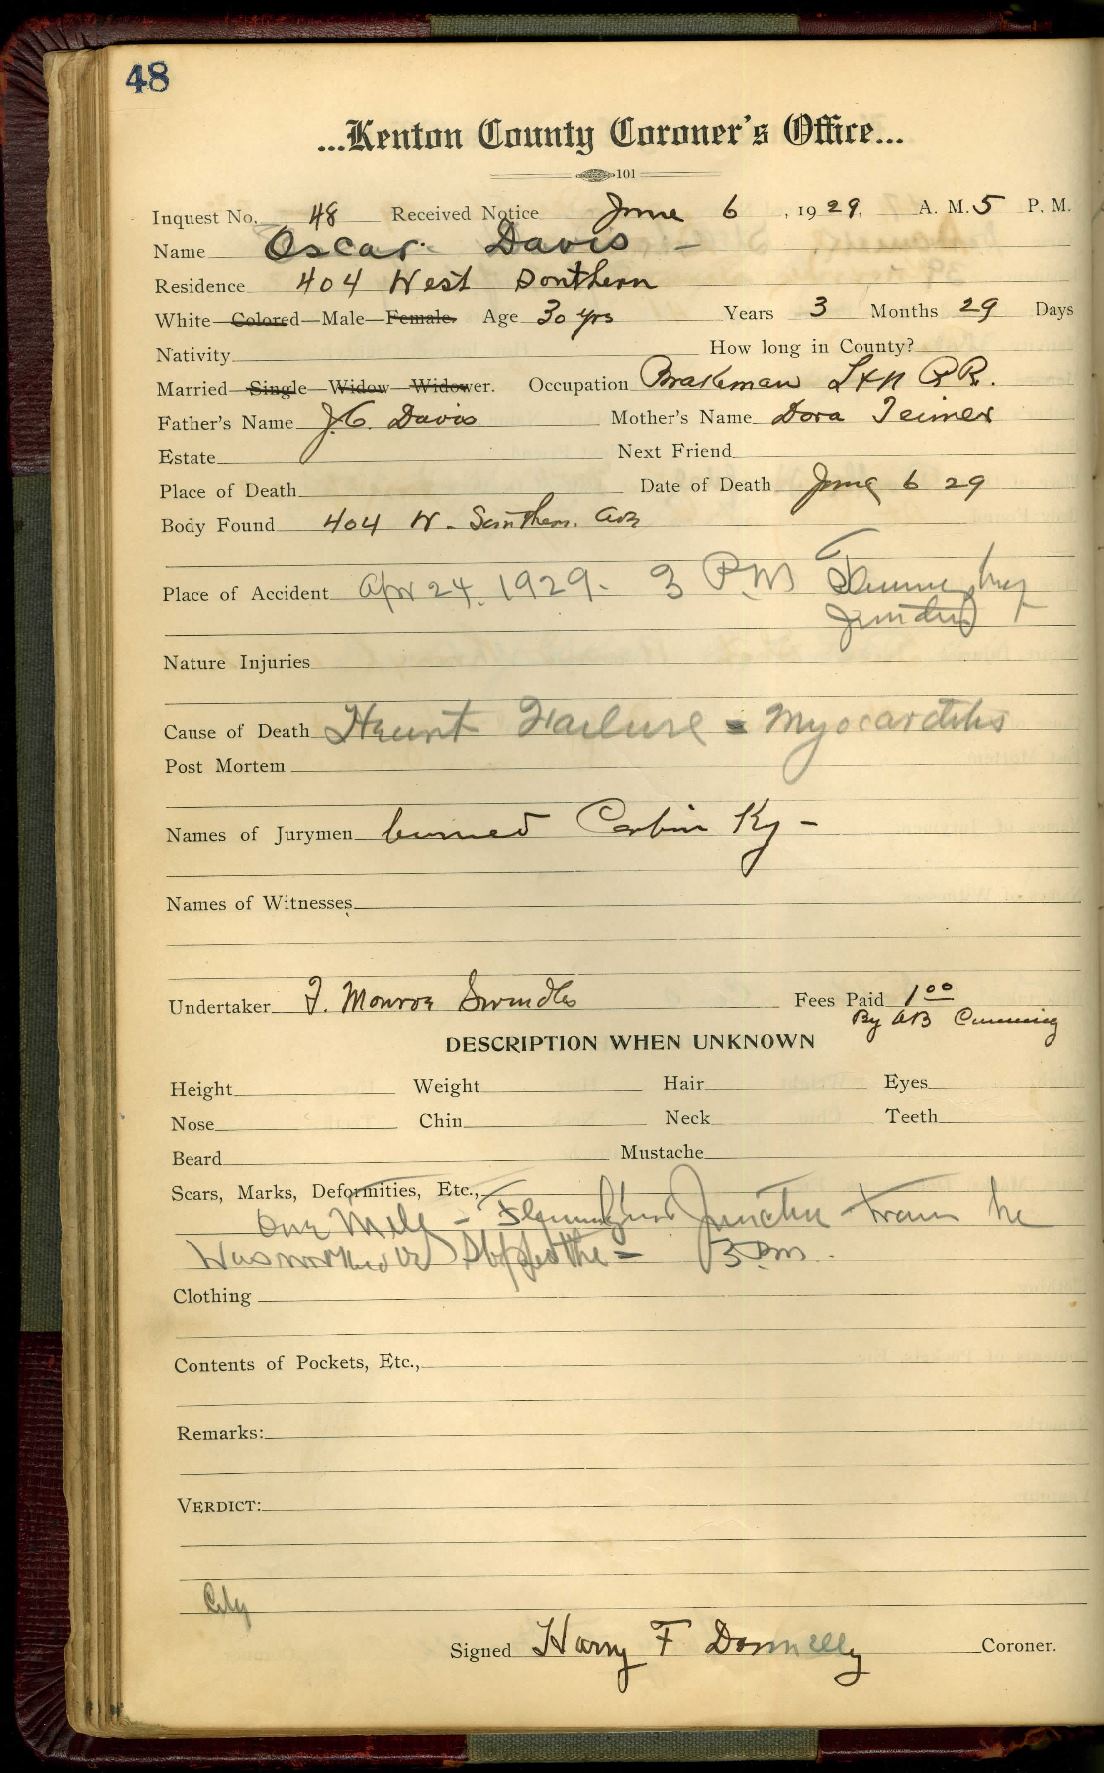 48
...Kenton County Coroner's Office...
101
Inquest No. 48 Received Notice June 6, 1929. A. M. 5 P. M.
Name Oscar Davis -
Residence 404 West Southern
White—Colored—Male—Female. Age 30 yrs Years 3 Months 29 Days
Nativity How long in County?
Married—Single—Widow—Widower. Occupation Brakeman L & N R R.
Father's Name J.C. Davis Mother's Name Dora
Estate Next Friend
Place of Death Date of Death June 6 29
Body Found 404 W. Southern. Ave
Place of Accident Apr 24. 1929. 3 P.M
Junction
Nature Injuries
Cause of Death Heart Failure = Myocarditis
Post Mortem
Names of Jurymen buried Corbin Ky -
Names of Witnesses
Undertaker Monroe Swindler Fees Paid 1 00
By AB Cumming
DESCRIPTION WHEN UNKNOWN
Height Weight Hair Eyes
Nose Chin Neck Teeth
Beard Mustache
Scars, Marks, Deformities, Etc.,
One Mile - Junction train he
Was 3 P.m.
Clothing
Contents of Pockets, Etc.,
Remarks:
VERDICT:
City
Signed Harry F Donnelly Coroner.